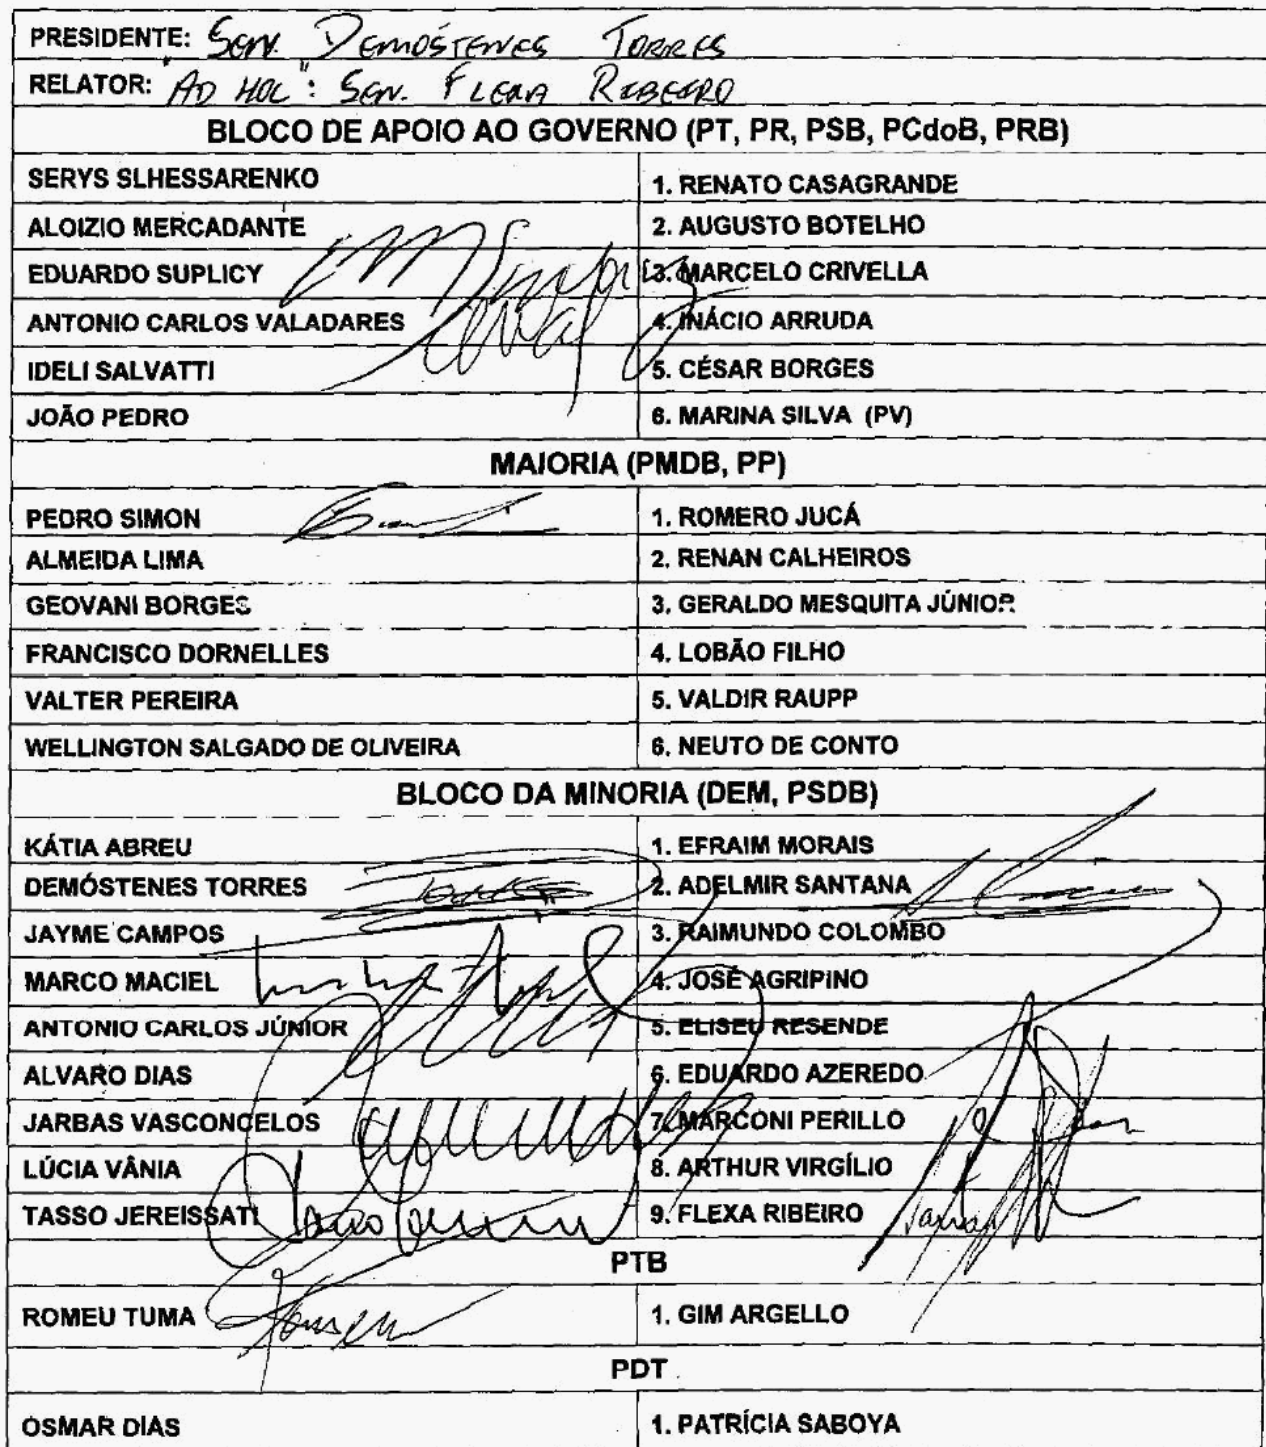 PRESIDENTE: Sen. Demóstenes Torres
RELATOR: "AD HOC": Sen. Flexa Ribeiro
BLOCO DE APOIO AO GOVERNO (PT, PR, PSB, PCdoB, PRB)
SERYS SLHESSARENKO 1. RENATO CASAGRANDE
ALOIZIO MERCADANTE 2. AUGUSTO BOTELHO
EDUARDO SUPLICY 3. MARCELO CRIVELLA
ANTONIO CARLOS VALADARES 4. INÁCIO ARRUDA
IDELI SALVATTI 5. CÉSAR BORGES
JOÃO PEDRO 6. MARINA SILVA (PV)
MAIORIA (PMDB, PP)
PEDRO SIMON 1. ROMERO JUCÁ
ALMEIDA LIMA 2. RENAN CALHEIROS
GEOVANI BORGES 3. GERALDO MESQUITA JÚNIOR
FRANCISCO DORNELLES 4. LOBÃO FILHO
VALTER PEREIRA 5. VALDIR RAUPP
WELLINGTON SALGADO DE OLIVEIRA 6. NEUTO DE CONTO
BLOCO DA MINORIA (DEM, PSDB)
KÁTIA ABREU 1. EFRAIM MORAIS
DEMÓSTENES TORRES 2. ADELMIR SANTANA
JAYME CAMPOS 3. RAIMUNDO COLOMBO
MARCO MACIEL 4. JOSÉ AGRIPINO
ANTONIO CARLOS JÚNIOR 5. ELISEU RESENDE
ALVARO DIAS 6. EDUARDO AZEREDO
JARBAS VASCONCELOS 7. MARCONI PERILLO
LÚCIA VÂNIA 8. ARTHUR VIRGÍLIO
TASSO JEREISSATI 9. FLEXA RIBEIRO
PTB
ROMEU TUMA 1. GIM ARGELLO
PDT
OSMAR DIAS 1. PATRÍCIA SABOYA